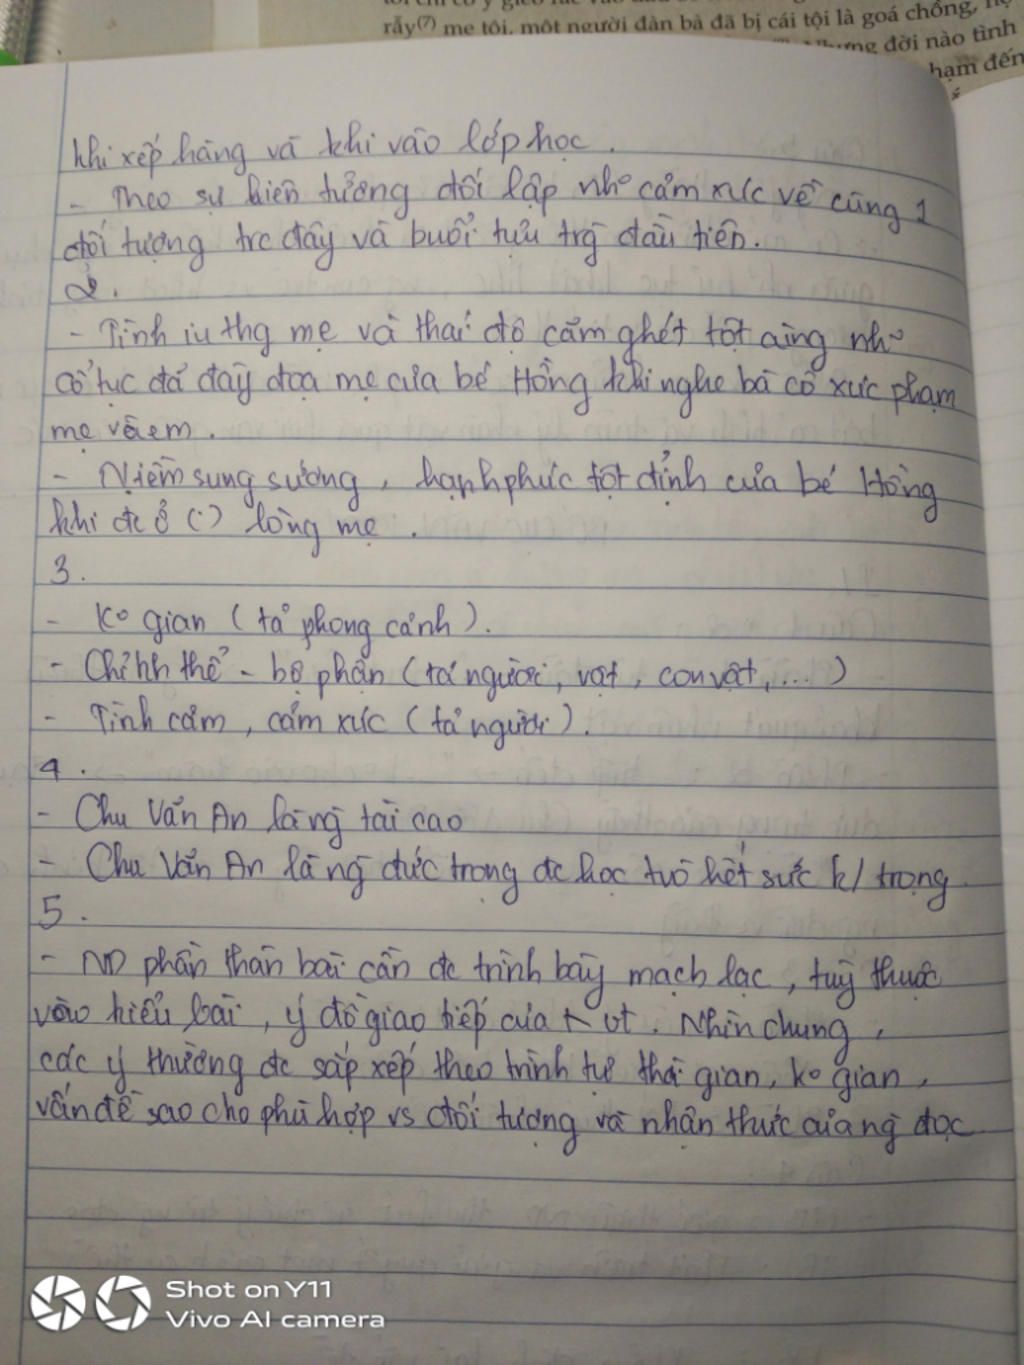 rẫy(7) mẹ tôi, một người đàn bà đã bị cái tội là goá chồng,
Nhưng đời nào tình
hạm đến
khi xếp hàng và khi vào lớp học.
- Theo sự liên tưởng đối lập như cảm xúc về cùng 1
đối tượng trc đây và buổi tựu trg đầu tiên.
2.
- Tình iu thg mẹ và thái độ căm ghét tột cùng nhữ
cổ tục đã đày đọa mẹ của bé Hồng khi nghe bà cô xúc phạm
mẹ và em.
- Niềm sung sướng, hạnh phúc tột đỉnh của bé Hồng
khi đc ở (:) lòng mẹ.
3.
- Ko gian (tả phong cảnh).
- Chỉnh thể - bộ phận (tả người, vật, con vật, ...)
- Tình cảm, cảm xúc (tả người).
4.
- Chu Văn An là ng tài cao
- Chu Văn An là ng đức trọng đc học trò hết sức k/ trọng
5.
- ND phần thân bài cần đc trình bày mạch lạc, tuỳ thuộc
vào kiểu bài, ý đồ giao tiếp của vt. Nhìn chung,
các ý thường đc sắp xếp theo trình tự thời gian, ko gian,
vấn đề sao cho phù hợp vs đối tượng và nhận thức của ng đọc
Shot on Y11
Vivo AI camera